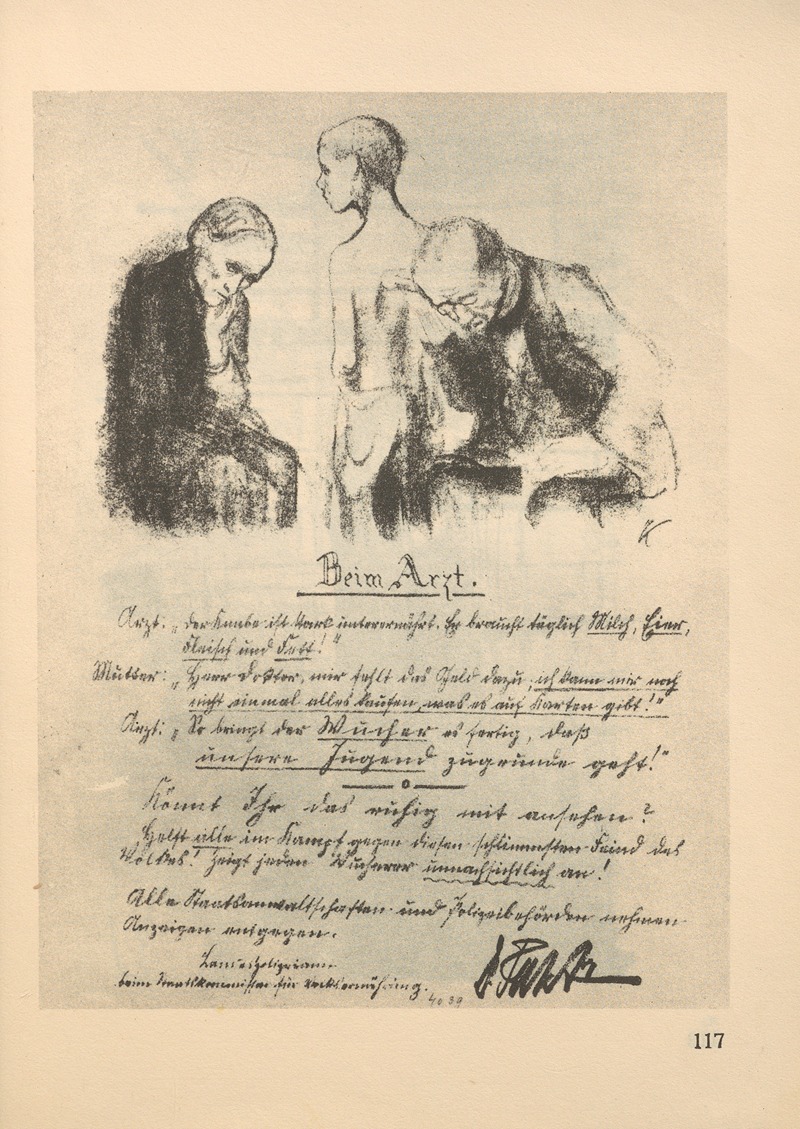 K
Beim Arzt.
Arzt: „Der Knabe ist stark unterernährt. Er braucht täglich Milch, Eier,
Fleisch und Fett!“
Mutter: „Herr Doktor, mir fehlt das Geld dazu, ich kann mir noch
nicht einmal alles kaufen, was es auf Karten gibt!“
Arzt: „So bringt der Wucher es fertig, daß
unsere Jugend zugrunde geht!“
Könnt Ihr das ruhig mit ansehen?
Helft alle im Kampf gegen diesen schlimmsten Feind des
Volkes! Zeigt jeden Wucherer unnachsichtlich an!
Alle Staatsanwaltschaften und Polizeibehörden nehmen
Anzeigen entgegen.
Landespolizeiamt
beim Staatskommissar für Volksernährung.
4039
117